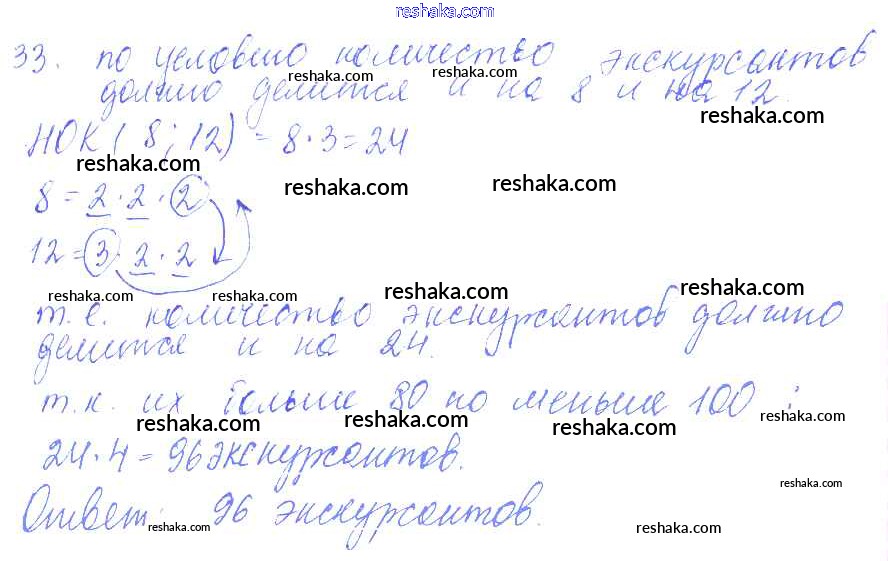 reshaka.com
33. по условию количество экскурсантов
reshaka.com reshaka.com
должно делится и на 8 и на 12.
reshaka.com
НОК (8; 12) = 8 · 3 = 24
reshaka.com
reshaka.com reshaka.com
8 = 2 · 2 · 2
12 = 3 · 2 · 2
reshaka.com reshaka.com reshaka.com reshaka.com
т.е. количество экскурсантов должно
делится и на 24.
т.к. их больше 80 но меньше 100 :
reshaka.com reshaka.com reshaka.com reshaka.com
24 · 4 = 96 экскурсантов.
reshaka.com
Ответ: 96 экскурсантов.
reshaka.com reshaka.com